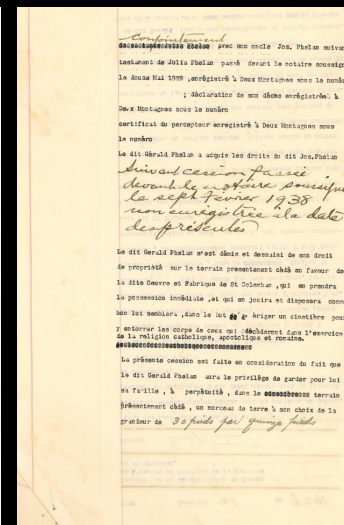 conjointement
avec son oncle Jos. Phelan suivan
testament de Julia Phelan passé devant le notaire soussign
le douze Mai 1929 ,enrégistré à Deux Montagnes sous le numé
; déclaration de son décès enrégistrée à
Deux Montagnes sous le numéro
certificat du percepteur enregistré à Deux Montagnes sous
le numéro
Le dit Gérald Phelan a acquis les droits du dit Jos.Phelan
Suivant cession passée
devant le notaire soussigné
le sept Février 1938
non enregistrée à la date
des présentes
Le dit Gerald Phelan s'est démis et dessaisi de son droit
de propriété sur le terrain presentement cédé en faveur de
la dite Oeuvre et Fabrique de St Colomban ,qui en prendra
la possession immédiate ,et qui en jouira et disposera comme
bon lui semblera ,dans le but d' ériger un cimetière pour
y enterrer les corps de ceux qui décèderont dans l'exercice
de la religion catholique, apostolique et romaine.
La présente cession est faite en considération du fait que
le dit Gerald Phelan aura le privilège de garder pour lui
sa famille , à perpétuité , dans le terrain
présentement cédé , un morceau de terre à son choix de la
grandeur de 30 pieds par quinze pieds